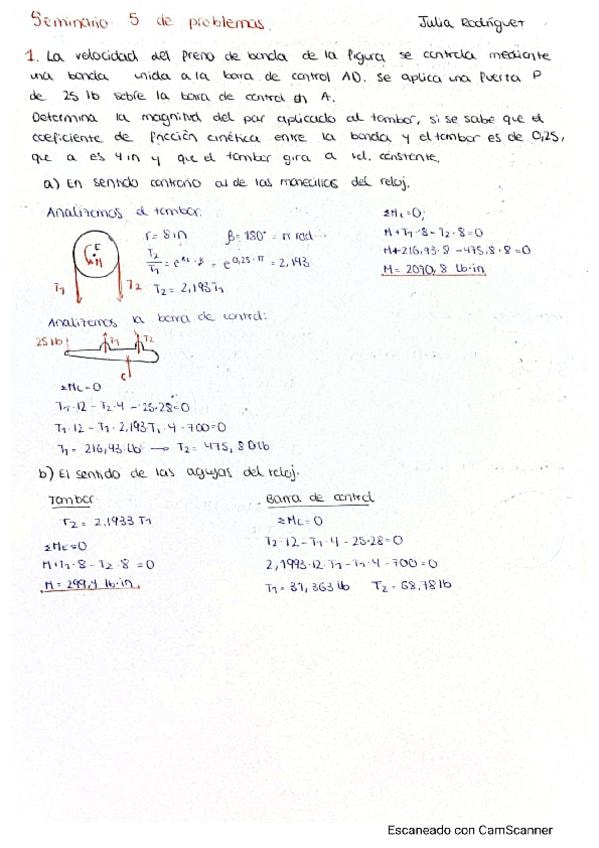 Seminario 5 de problemas.
Julia Rodríguez
1. La velocidad del freno de banda de la figura se controla mediante
una banda unida a la barra de control AD. Se aplica una fuerza P
de 25 lb sobre la barra de control en A.
Determina la magnitud del par aplicado al tambor, si se sabe que el
coeficiente de fricción cinética entre la banda y el tambor es de 0,25,
que a es 4 in y que el tambor gira a vel. constante.
a) En sentido contrario al de las manecillas del reloj.
Analizamos el tambor.
r = 8 in β = 180° = π rad
T2/T1 = e^μk·β = e^0,25·π = 2,193
T2 = 2,193 T1
E
M
T1
T2
M + T1·8 - T2·8 = 0
M + 216,93·8 - 475,8·8 = 0
M = 2070,8 lb·in
Analizamos la barra de control:
25 lb
T1
T2
C
T1·12 - T2·4 - 25·28 = 0
T1·12 - T1·2,193·T1·4 - 700 = 0
T1 = 216,93 lb → T2 = 475,80 lb
b) El sentido de las agujas del reloj.
Tambor
T2 = 2.1933 T1
ΣME = 0
M + T1·8 - T2·8 = 0
M = 299,4 lb·in
Barra de control
ΣMC = 0
T2·12 - T1·4 - 25·28 = 0
2,1993·12·T1 - T1·4 - 700 = 0
T1 = 31,363 lb T2 = 68,78 lb
Escaneado con CamScanner